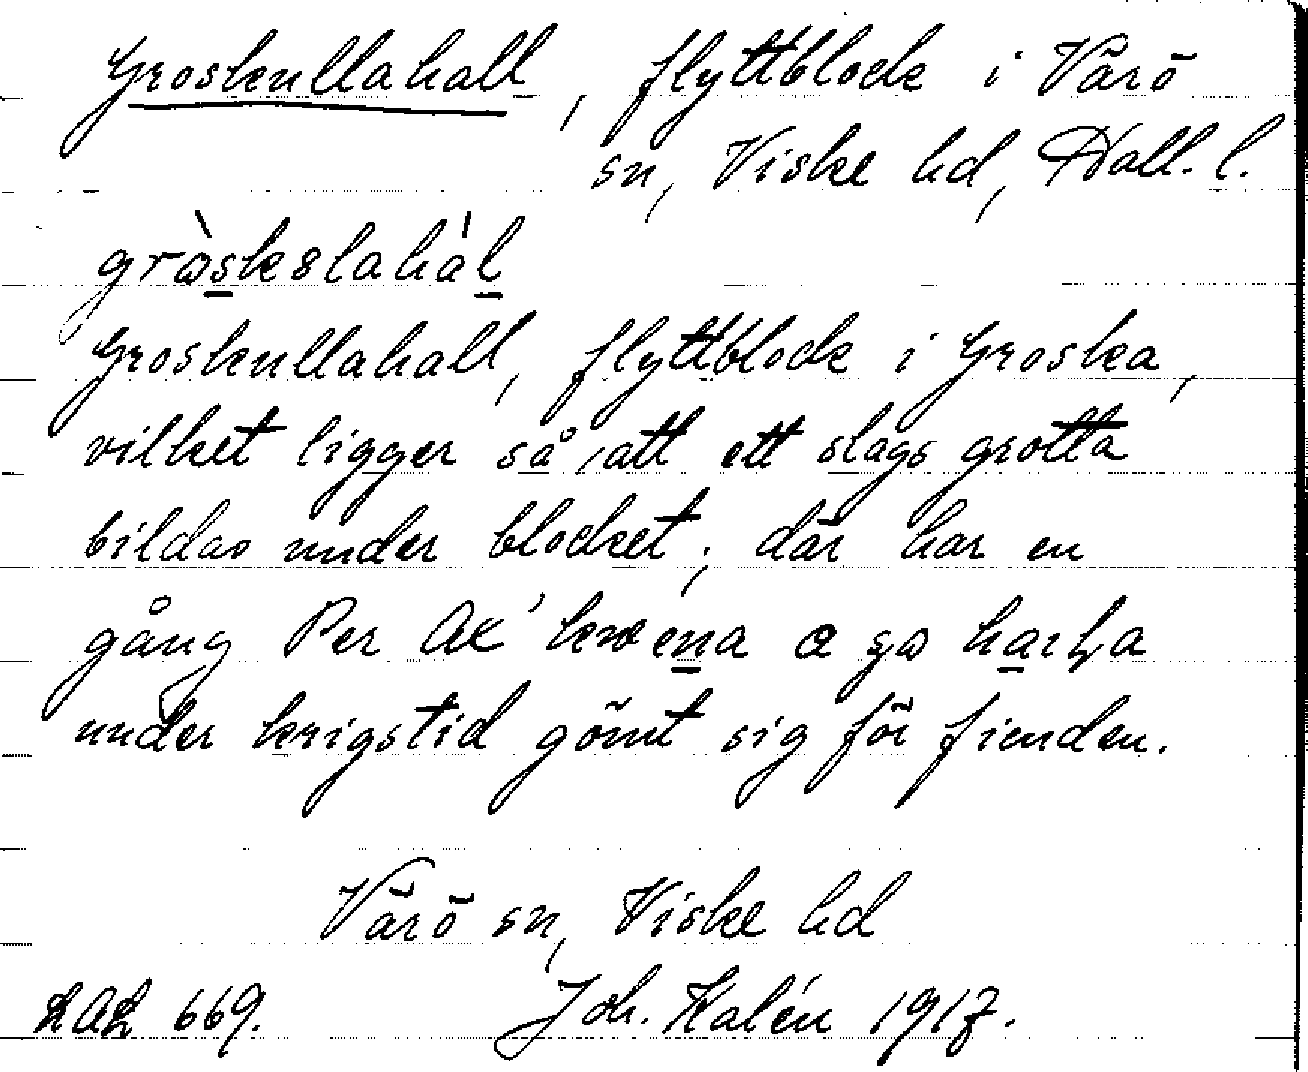 Groskullahall, flyttblock i Värö
sn, Viske hd, Hall. l.
Groskullahall, flyttblock i Groska,
vilket ligger så, att ett slags grotta
bildas under blocket; där har en
gång Per
under krigstid gömt sig för fienden.
Värö sn, Viske hd
LAL 669. Joh. Kalén 1917.